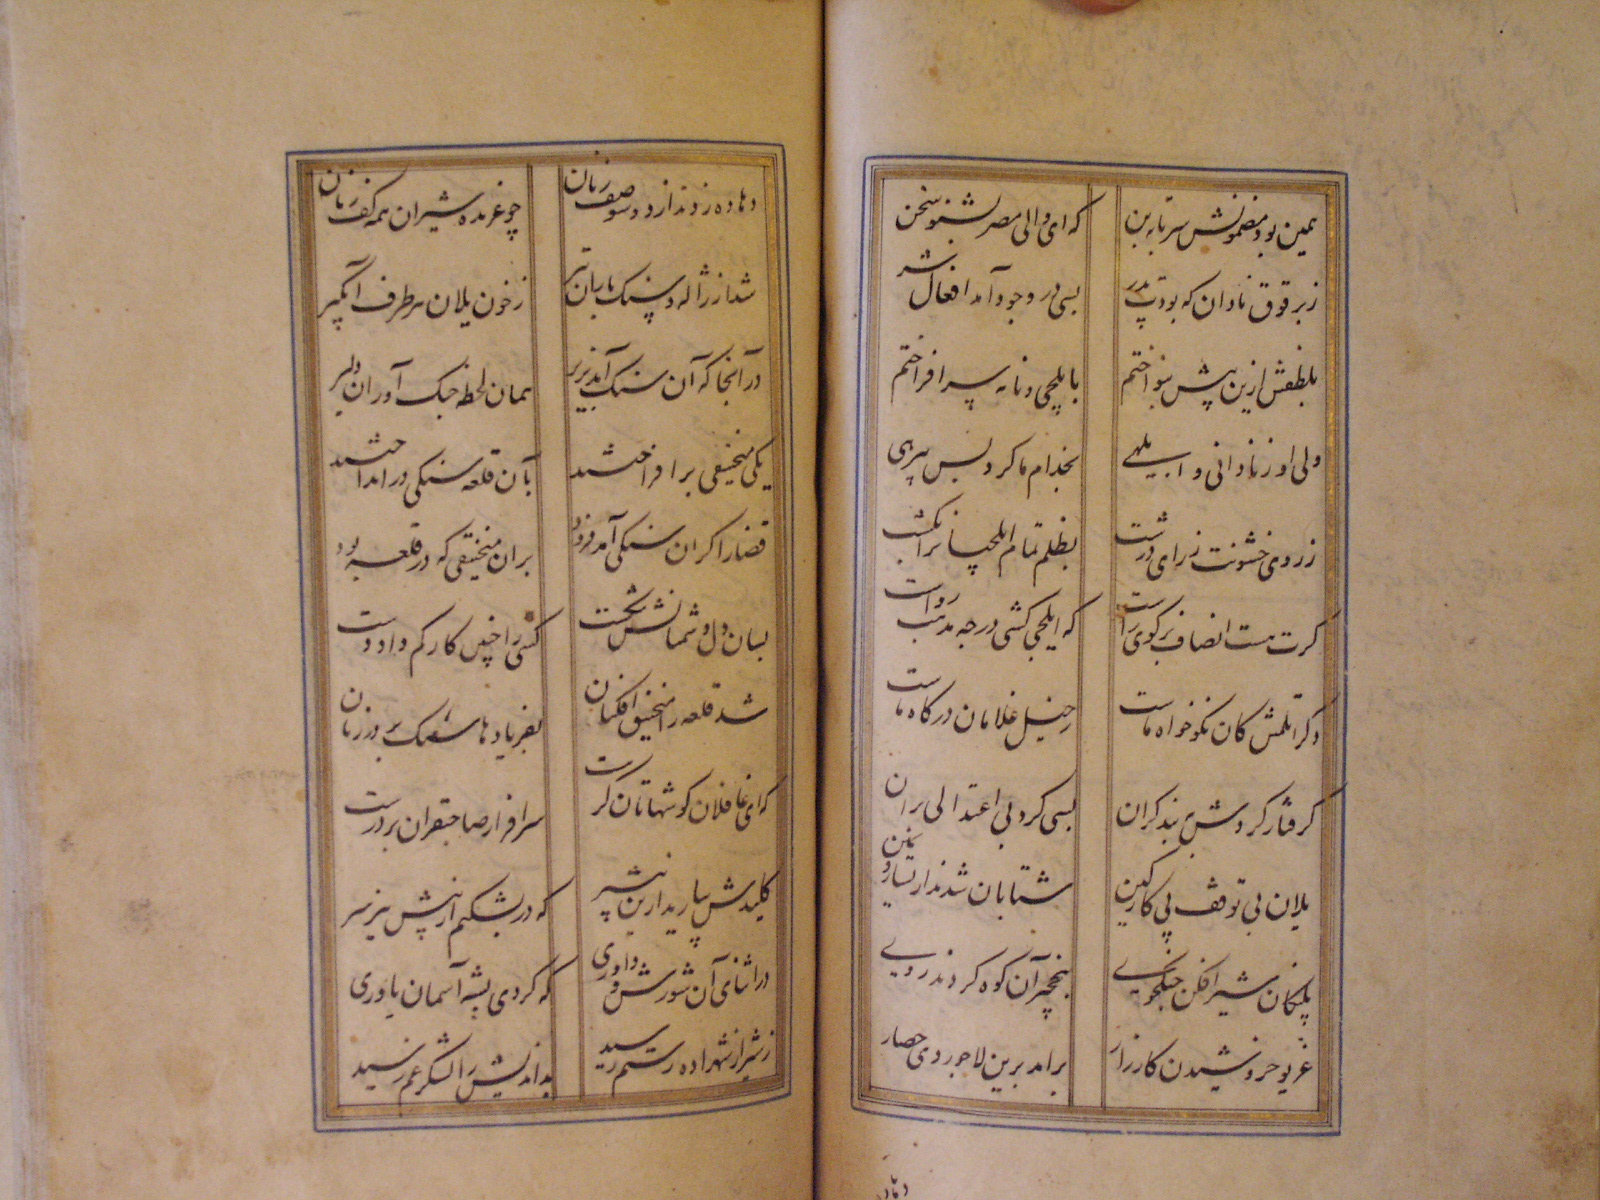 همین بود مضمونش سر تا به بن که ای والی مصر بشنو سخن
ز برقوق نادان که بودت پدر بسی در وجود آمد افعال شر
بلطفش ازین پیش بنواختم با یلچی و نامه سرافراختم
ولی او ز نادانی و ابلهی بخدام ما کرد بس بیرهی
ز روی خشونت ز رای درشت بظلم تمام ایلچیانرا بکشت
کرت هست انصاف بر کوی راست که ایلچی کشی در چه مذهب رواست
دکر اتلمش کان نکوخواه ماست ز خیل غلامان درکاه ماست
کرفتار کردش به بند کران بسی کرد بی اعتدالی بران
یلان بی توقف پی کار کین شتابان شدند از یسار و یمین
پلنکان شیر افکن جنکجوی بنخچیر آن کوه کردند روی
غریو خروشیدن کارزار برامد برین لاجوردی حصار
دهاده زدند از دو سو صف زنان چو غرنده شیران همه کف زنان
شد از ژاله و سنک باران تیر ز خون یلان هر طرف آبکیر
در آنجا که آن سنک آمد بزیر همان لحظه جنک آوران دلیر
یکی منجنیقی برافراختند بآن قلعه سنکی در انداختند
قضا را کزان سنکی آمد فرود بران منجنیقی که در قلعه بود
بسان دل دشمنانش شکست کسی را چنین کار کم داد دست
شد قلعه را منجنیق افکنان بفریادها سنک بر در زنان
که ای غافلان کوشهاتان کرست سرافراز صاحبقران بر درست
کلیدش بیارید ازین پیشتر که در بشکنم از پیش نیز سر
در اثنای آن شورش و داوری که کردی بشه آسمان یاوری
ز شیراز شهزاده رستم رسید بداندیش را لشکر غم رسید